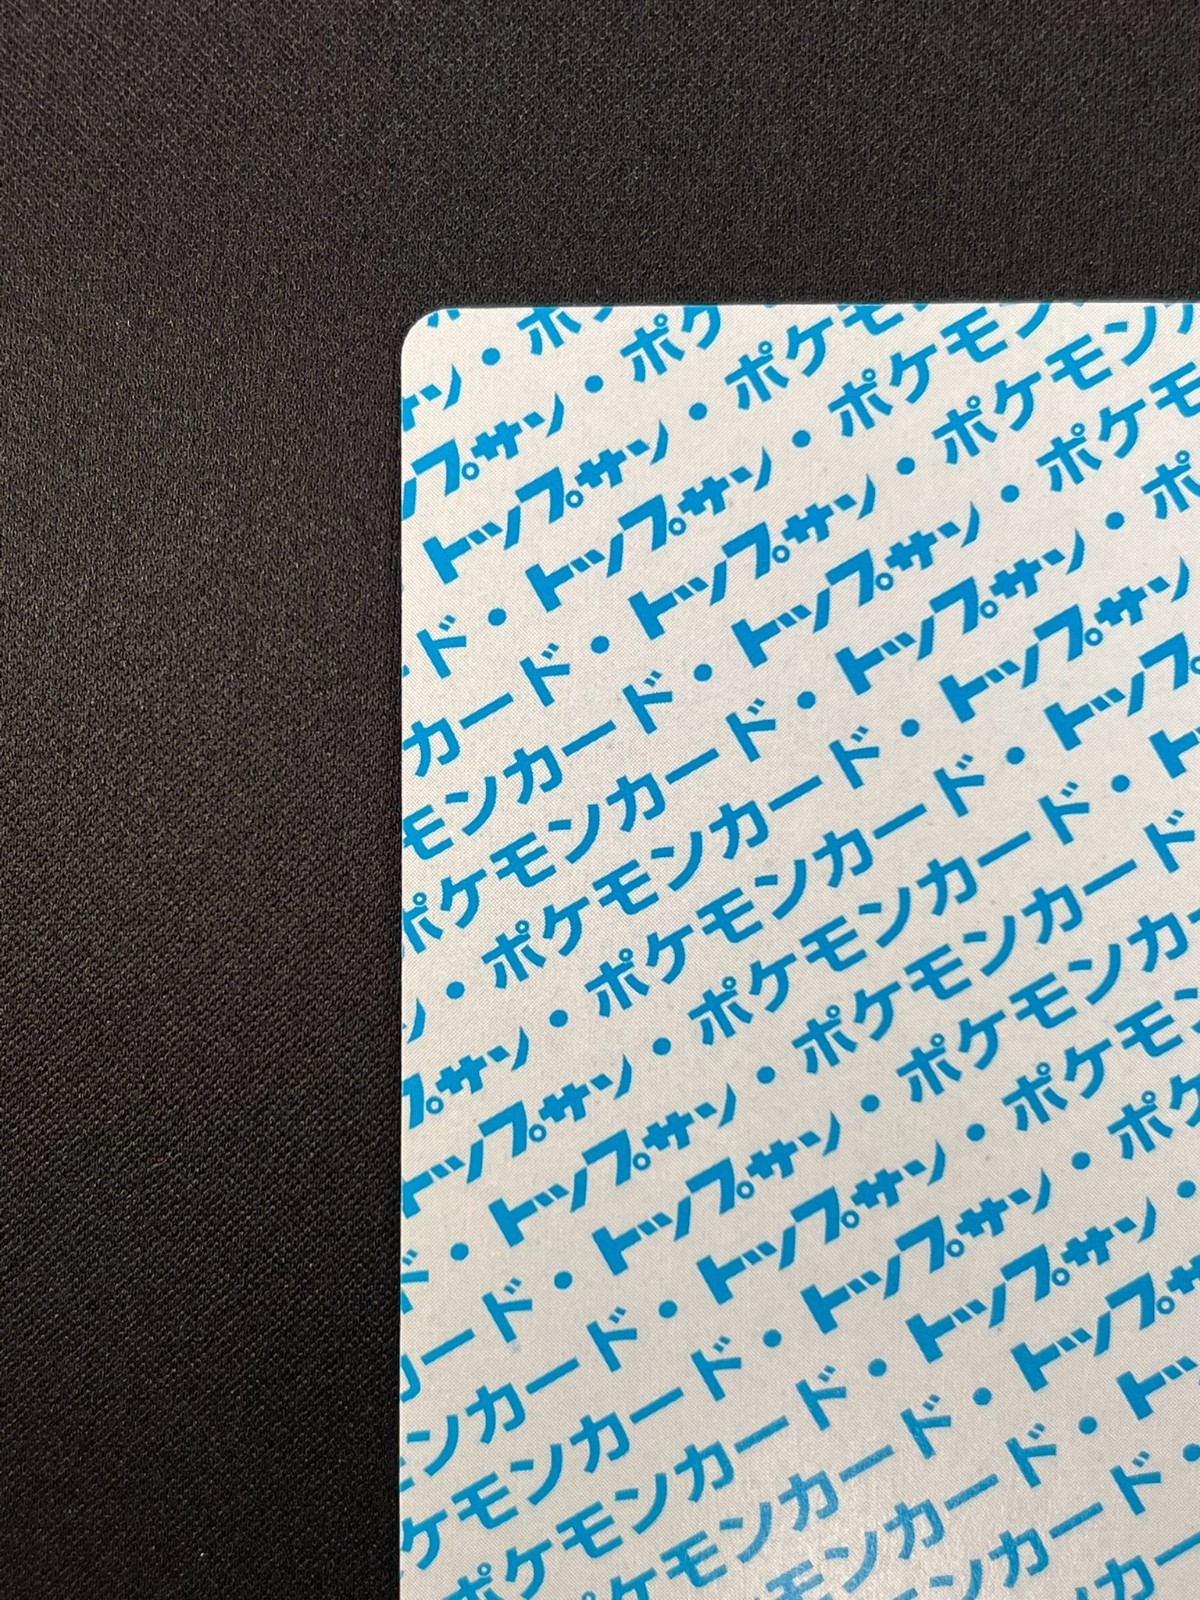 サン・ポ
プサン・ポケ
トップサン・ポケモ
ド・トップサン・ポケモン
カード・トップサン・ポケモン
モンカード・トップサン・ポケモン
ポケモンカード・トップサン・ポケモ
・ポケモンカード・トップサン・ポ
ン・ポケモンカード・トップサン
プサン・ポケモンカード・トップ
トップサン・ポケモンカード・ト
ド・トップサン・ポケモンカード
カード・トップサン・ポケモンカ
ンカード・トップサン・ポケモン
ケモンカード・トップサン・ポケ
ポケモンカード・トップサン・
ケモンカード・トップサ
モンカード・ト
ンカード・
カー